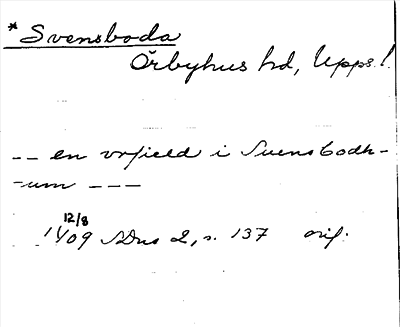 * Svensboda
Örbyhus hd, Upps l.
-- en vrfield i Svensbodh-
-um ---
12/8
1409 SDns 2, s. 137 orig.